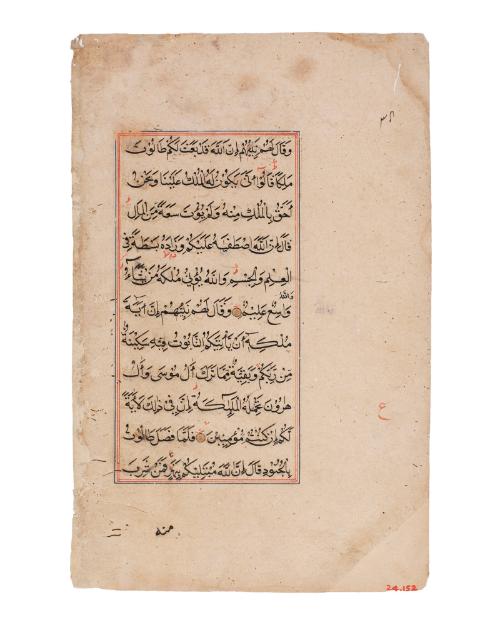 ٣٨
وَقَالَ لَهُمْ نَبِيُّهُمْ إِنَّ اللَّهَ قَدْ بَعَثَ لَكُمْ طَالُوتَ
مَلِكًا قَالُوا أَنَّى يَكُونُ لَهُ الْمُلْكُ عَلَيْنَا وَنَحْنُ
أَحَقُّ بِالْمُلْكِ مِنْهُ وَلَمْ يُؤْتَ سَعَةً مِنَ الْمَالِ
قَالَ إِنَّ اللَّهَ اصْطَفَيهُ عَلَيْكُمْ وَزَادَهُ بَسْطَةً فِي
الْعِلْمِ وَالْجِسْمِ وَاللَّهُ يُؤْتِي مُلْكَهُ مَنْ يَشَاءُ
وَاللَّهُ
وَاسِعٌ عَلِيمٌ وَقَالَ لَهُمْ نَبِيُّهُمْ إِنَّ آيَةَ
مُلْكِهِ أَنْ يَأْتِيَكُمُ التَّابُوتُ فِيهِ سَكِينَةٌ
مِنْ رَبِّكُمْ وَبَقِيَّةٌ مِمَّا تَرَكَ آلُ مُوسَى وَآلُ
هَرُونَ تَحْمِلُهُ الْمَلَئِكَةُ إِنَّ فِي ذَلِكَ لَآيَةً
لَكُمْ إِنْ كُنْتُمْ مُؤْمِنِينَ فَلَمَّا فَصَلَ طَالُوتُ
بِالْجُنُودِ قَالَ إِنَّ اللَّهَ مُبْتَلِيكُمْ بِنَهَرٍ فَمَنْ شَرِبَ
ع
منه
24.152